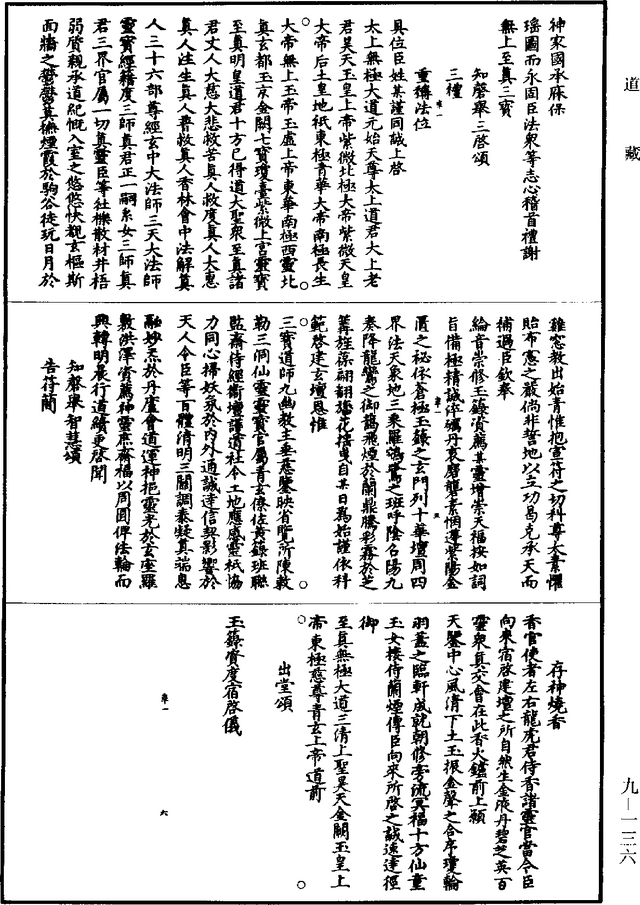 道藏
神家國承庥保
瑶圖而永固臣法衆等志心稽首禮謝
無上至真三寶
知磬舉三啓頌
三禮
重稱法位
具位臣姓某謹同誠上啓
太上無極大道元始天尊太上道君太上老
君昊天玉皇上帝紫微北極大帝紫微天皇
大帝后土皇地祇東極青華大帝南極長生
大帝無上玉帝玉虚上帝東華南極西靈北
真玄都玉京金闕七寶瓊臺紫微上宫靈寶
至真明皇道君十方已得道大聖衆至真諸
君丈人大慈大悲救苦真人救度真人大惠
真人注生真人普救真人香林會中法解真
人三十六部尊經玄中大法師三天大法師
靈寶經籍度三師真君正一嗣系女三師真
君三界官屬一切真靈臣等社櫟散材井梧
弱質親承道紀慨入室之悠悠快覩玄樞斯
面牆之
煙霞於駒谷徒玩日月於
雖窓教出始青惟抱宣符之切科尊太素懼
貽布憲之嚴倘非誓地以立功曷克承天而
補過臣欽奉
綸音崇修玉籙資薦某靈增崇天福按如詞
旨備極精誠倅礪丹衷磨礱素悃遵紫陽金
匱之祕依蒼極玉籙之玄門列十華壇周四
界法天象地三乘羅鴻鷺之班呼陰召陽九
奏降龍鸞之御鶴飛煙於蘭鼎騰彩霧於芝
篝旌葆翩翻旛花摟曳自某日爲始謹依科
範啓建玄壇恩惟
三寶道師九幽教主垂慈鑒映省覽所陳敕
勒三洞仙靈靈寶官屬青玄僚佐黄籙班聯
監齋侍經衞壇護道社令土地應感靈祇協
力同心掃妖氛於内外通誠達信契影響於
天人令臣等百體清明三關調泰凝真端息
融妙炁於丹廬會道運神挹靈光於玄座羅
敷洪澤資薦神靈庶齋福以周圓俾法輪而
興轉明晨行道續更啓聞
知磬舉智慧頌
告符簡
存神燒香
香官使者左右龍虎君侍香諸靈官當令臣
向來宿啓建壇之所自然生金液丹碧芝英百
靈衆真交會在此香火鑪前上願
天鑒中心風清下土玉振金聲之合序瓊輪
羽蓋之臨軒咸就朝修旁流冥福十方仙童
玉女接侍蘭煙傳臣向來所啓之誠速達徑
御
至真無極大道三清上聖昊天金闕玉皇上
帝東極慈尊青玄上帝道前
出堂頌
玉籙資度宿啓儀
九－一三六